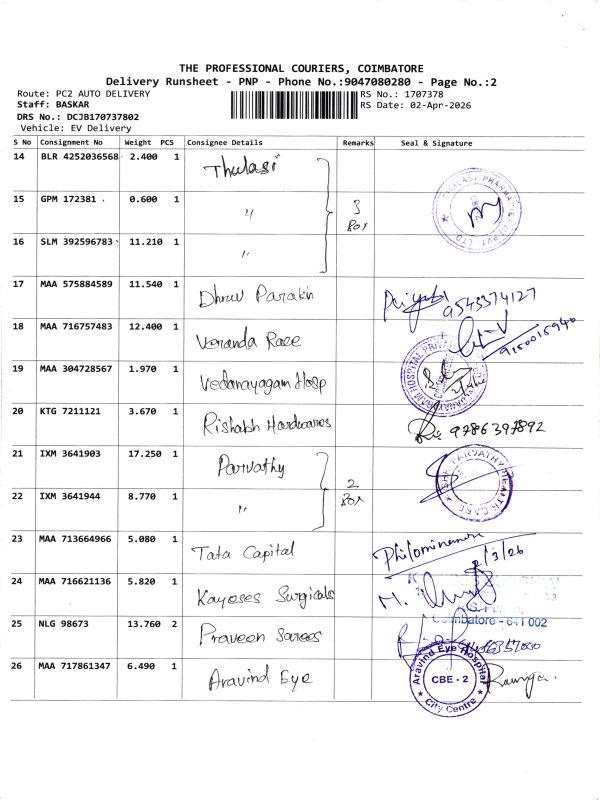 THE PROFESSIONAL COURIERS, COIMBATORE
Delivery Runsheet - PNP - Phone No.:9047080280 - Page No.:2
Route: PC2 AUTO DELIVERY
RS No.: 1707378
Staff: BASKAR
RS Date: 02-Apr-2026
DRS No.: DCJB170737802
Vehicle: EV Delivery
S No Consignment No Weight PCS Consignee Details Remarks Seal & Signature
14 BLR 4252036568 2.400 1 Thulasi
15 GPM 172381 0.600 1 〃 3 Box
16 SLM 392596783 11.210 1 〃
17 MAA 575884589 11.540 1 Dhruv Parakin 9543374127
18 MAA 716757483 12.400 1 Veranda Race 9150015940
19 MAA 304728567 1.970 1 Vedanayagam Hosp
20 KTG 7211121 3.670 1 Rishabh Hardwares 9786397892
21 IXM 3641903 17.250 1 Parvathy 2 Box
22 IXM 3641944 8.770 1 〃
23 MAA 713664966 5.080 1 Tata Capital
24 MAA 716621136 5.820 1 Kayeses Surgicals M.
Coimbatore - 641 002
25 NLG 98673 13.760 2 Praveen Sarees
26 MAA 717861347 6.490 1 Aravind Eye
Aravind Eye Hospital
CBE - 2
City Centre